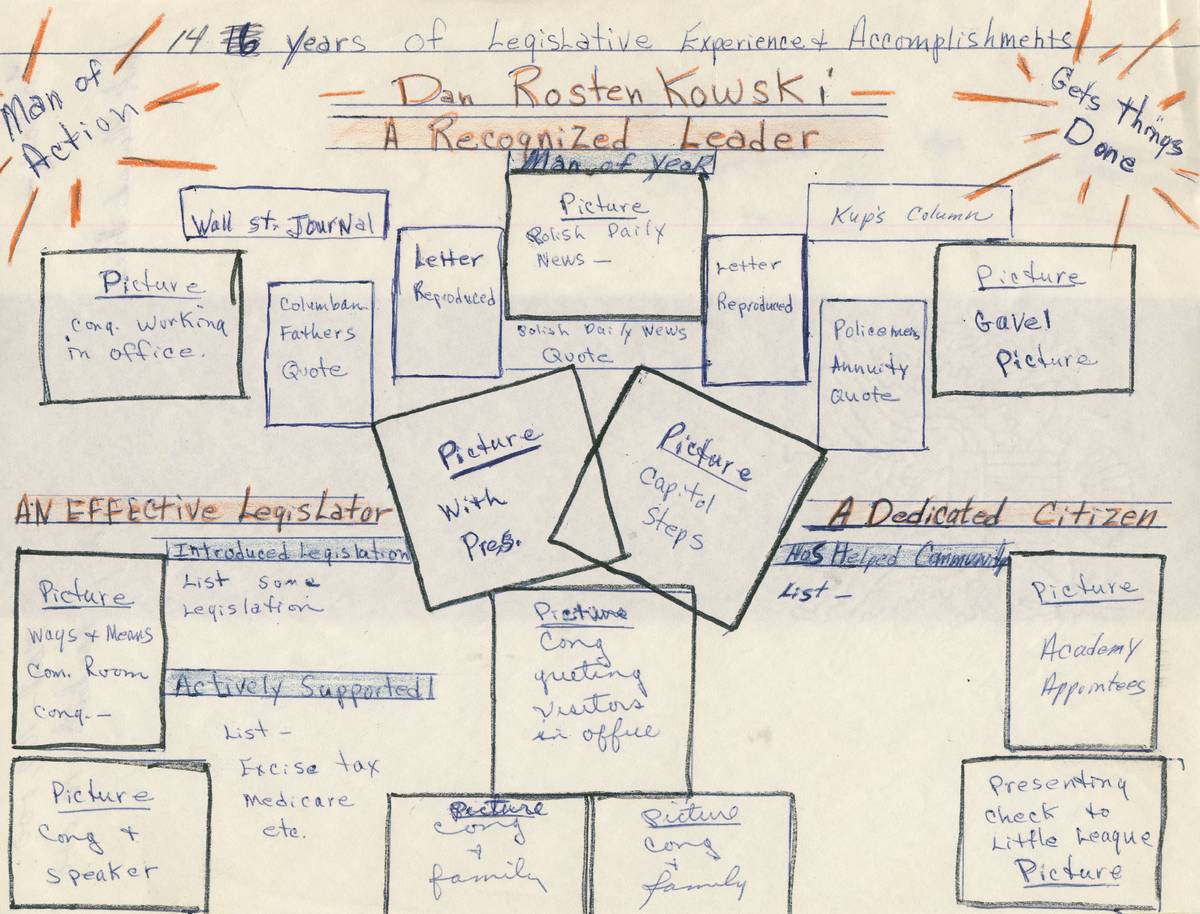 14 years of Legislative Experience & Accomplishments
Man of
Action
Dan Rostenkowski
A Recognized Leader
Gets things
Done
Man of Year
Picture
Polish Daily
News —
Polish Daily News
Quote
Wall St. Journal
Picture
Cong. working
in office.
Columban
Fathers
Quote
Letter
Reproduced
Letter
Reproduced
Kup's Column
Policemens
Annuity
Quote
Picture
Gavel
Picture
Picture
With
Pres.
Picture
Capitol
Steps
AN EFFective Legislator
Introduced Legislation
List some
Legislation
Picture
Ways & Means
Com. Room
Cong. —
Actively Supported
List —
Excise tax
Medicare
etc.
Picture
Cong &
Speaker
Picture
Cong
greeting
visitors
in office
Picture
Cong
&
family
Picture
Cong
&
family
A Dedicated Citizen
Has Helped Community
List —
Picture
Academy
Appointees
Presenting
Check to
Little League
Picture